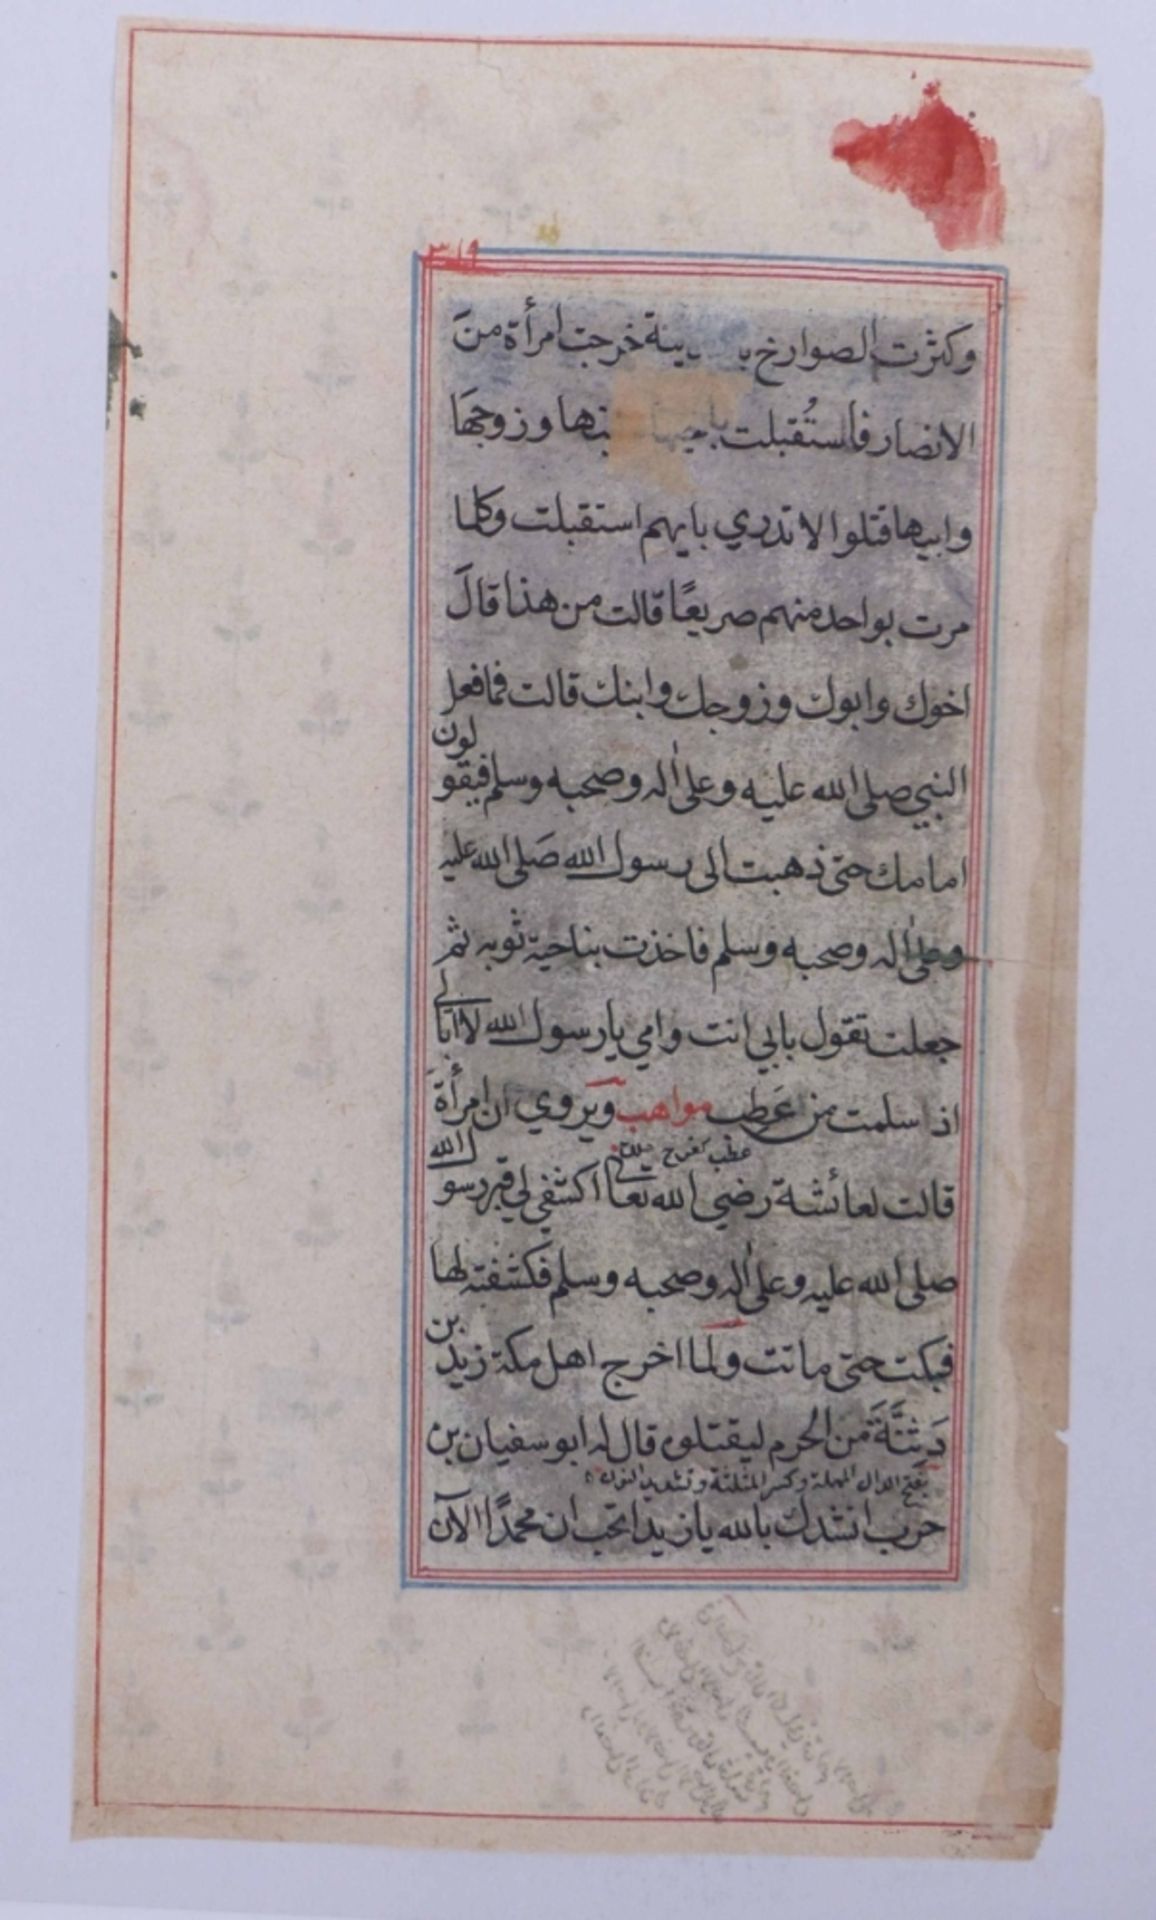 ٣١٩
وكثرت الصوارخ ينة خرجت امرأة من
الانصار فاستُقبلت بنها وزوجها
وابيها قتلوا لا تدري بايهم استقبلت وكلما
مرت بواحد منهم صريعًا قالت من هذا قالَ
اخوك وابوك وزوجك وابنك قالت فما فعل
النبي صلى الله عليه وعلى اله وصحبه وسلم فيقولون
امامك حتى ذهبت الى رسول الله صَلى الله عليه
وعلى اله وصحبه وسلم فاخذت بناحية ثوبه ثم
جعلت تقول بابي انت وامي يا رسول الله لا ابالي
اذ سلمت من عَطِب مواهب ويروي ان امرأة
عطب كفرح هلك
قالت لعائشة رضي الله تعالى اكشفي لي قبر رسول الله
صلى الله عليه وعلى اله وصحبه وسلم فكشفته لها
فبكت حتى ماتت ولما اخرج اهل مكة زيد بن
دَثِنَّةَ من الحرم ليقتلوه قال له ابو سفيان بن
بفتح الدال المهملة وكسر المثلثة وتشديد النون
حرب انشدك بالله يا زيد اتحب ان محمدًا الآن